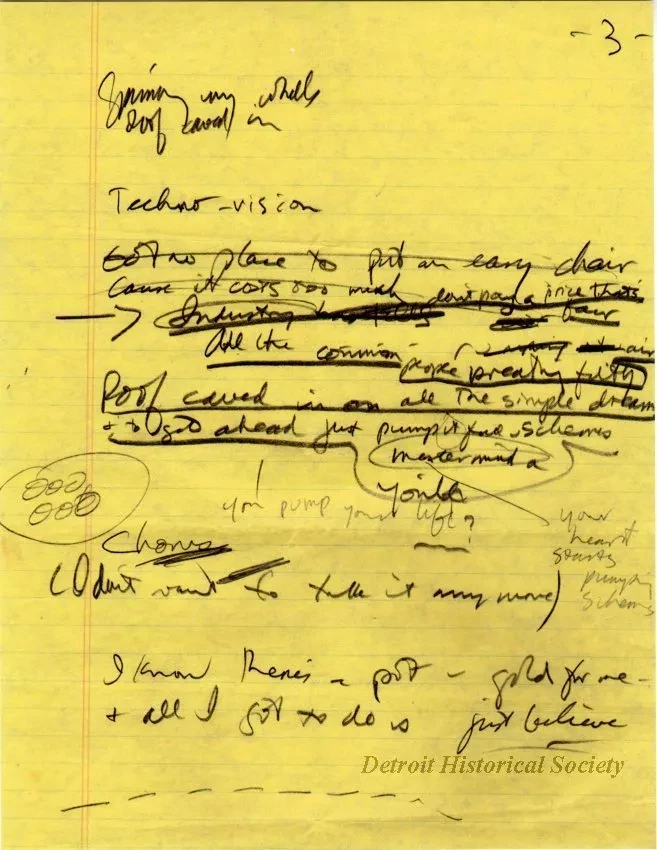 - 3 -
Spinning my wheels
Roof caved in
Techno-vision
Got no place to put an easy chair
Cause it costs too much don't pay a price that's
Industry fair
All the common people breathy filthy air
Roof caved in on all the simple dream
+ to get ahead just pump schemes
mastermind a
you pump your life?
your
heart
starts
pumping
schems
Chorus
(I don't want to talk it anymore)
I know there's a pot - gold for me -
+ all I got to do is just believe
Detroit Historical Society